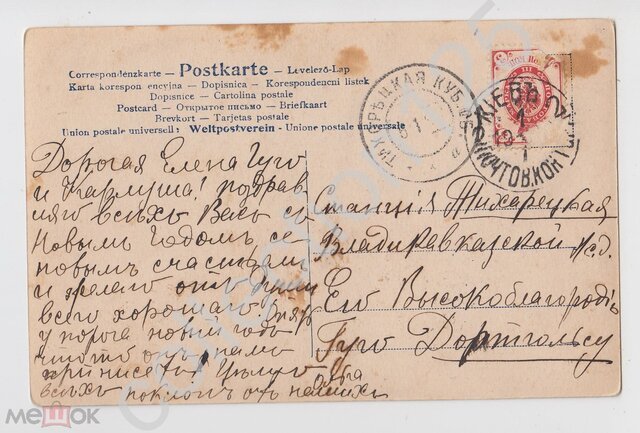 Correspondenzkarte — Postkarte — Levelező-Lap
Karta korespon encyjna — Dopisnica — Korespondencni listek
Dopisnice — Cartolina postale
Postcard — Открытое письмо — Briefkaart
Brevkort — Tarjetas postale
Union postale universell: Weltpostverein - Unione postale universale
ТИХОРѢЦКАЯ КУБ. ОБ.
КІЕВЪ
ПОЧТОВ. КОН
1
Дорогая Елена Гуго
и Карлуша! поздрав
ляю всѣхъ Васъ съ
Новымъ Годомъ съ
новымъ счастьемъ
и желаю отъ души
всего хорошаго
у порога новый годъ
что то онъ намъ
принисетъ Цѣлую
всѣхъ поклонъ отъ нашихъ
Ольга
Станція Тихарецкая
Владикавказской ж.д.
Его Высокоблагородію
Гуго Дортгольсу
мешок